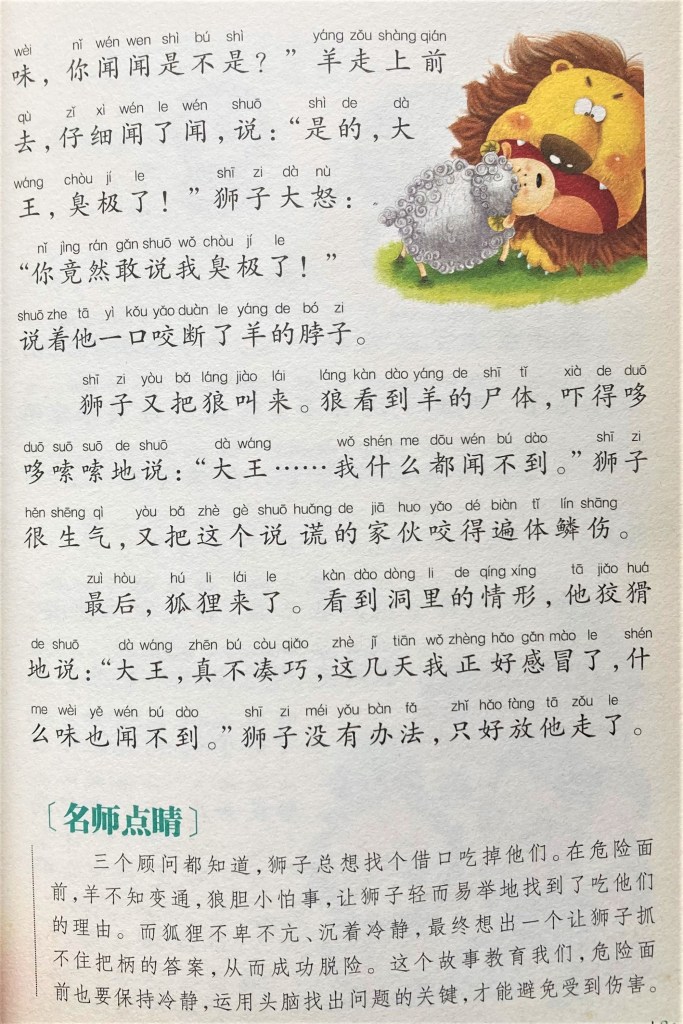 wèi nǐ wén wen shì bú shì yáng zǒu shàng qián
味，你闻闻是不是？”羊走上前
qù zǐ xì wén le wén shuō shì de dà
去，仔细闻了闻，说：“是的，大
wáng chòu jí le shī zi dà nù
王，臭极了！”狮子大怒：
nǐ jìng rán gǎn shuō wǒ chòu jí le
“你竟然敢说我臭极了！”
shuō zhe tā yì kǒu yǎo duàn le yáng de bó zi
说着他一口咬断了羊的脖子。
shī zi yòu bǎ láng jiào lái láng kàn dào yáng de shī tǐ xià de duō
狮子又把狼叫来。狼看到羊的尸体，吓得哆
duō suō suō de shuō dà wáng wǒ shén me dōu wén bú dào shī zi
哆嗦嗦地说：“大王……我什么都闻不到。”狮子
hěn shēng qì yòu bǎ zhè gè shuō huǎng de jiā huo yǎo dé biàn tǐ lín shāng
很生气，又把这个说谎的家伙咬得遍体鳞伤。
zuì hòu hú li lái le kàn dào dòng li de qíng xíng tā jiǎo huá
最后，狐狸来了。看到洞里的情形，他狡猾
de shuō dà wáng zhēn bú còu qiǎo zhè jǐ tiān wǒ zhèng hǎo gǎn mào le shén
地说：“大王，真不凑巧，这几天我正好感冒了，什
me wèi yě wén bú dào shī zi méi yǒu bàn fǎ zhǐ hǎo fàng tā zǒu le
么味也闻不到。”狮子没有办法，只好放他走了。
〔名师点睛〕
三个顾问都知道，狮子总想找个借口吃掉他们。在危险面
前，羊不知变通，狼胆小怕事，让狮子轻而易举地找到了吃他们
的理由。而狐狸不卑不亢、沉着冷静，最终想出一个让狮子抓
不住把柄的答案，从而成功脱险。这个故事教育我们，危险面
前也要保持冷静，运用头脑找出问题的关键，才能避免受到伤害。